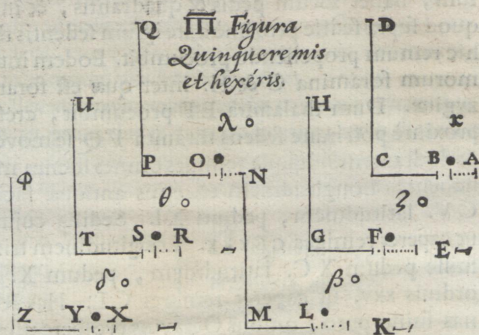 Q III Figura D
Quinqueremis
et hexéris.
U H
λ x
P O C B A
φ N
θ ξ
T S R G F E
δ β
Z Y X M L K